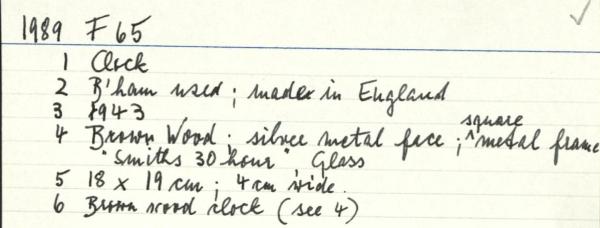 1989 F65
1 Clock
2 B'ham used; made in England
3 1943
4 Brown Wood; silver metal face; ^square metal frame
"Smiths 30 hour", Glass
5 18 x 19 cm; 4 cm wide.
6 Brown wood clock (see 4)